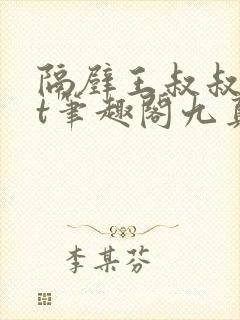 隔壁王叔叔
t笔趣阁九
李某芬